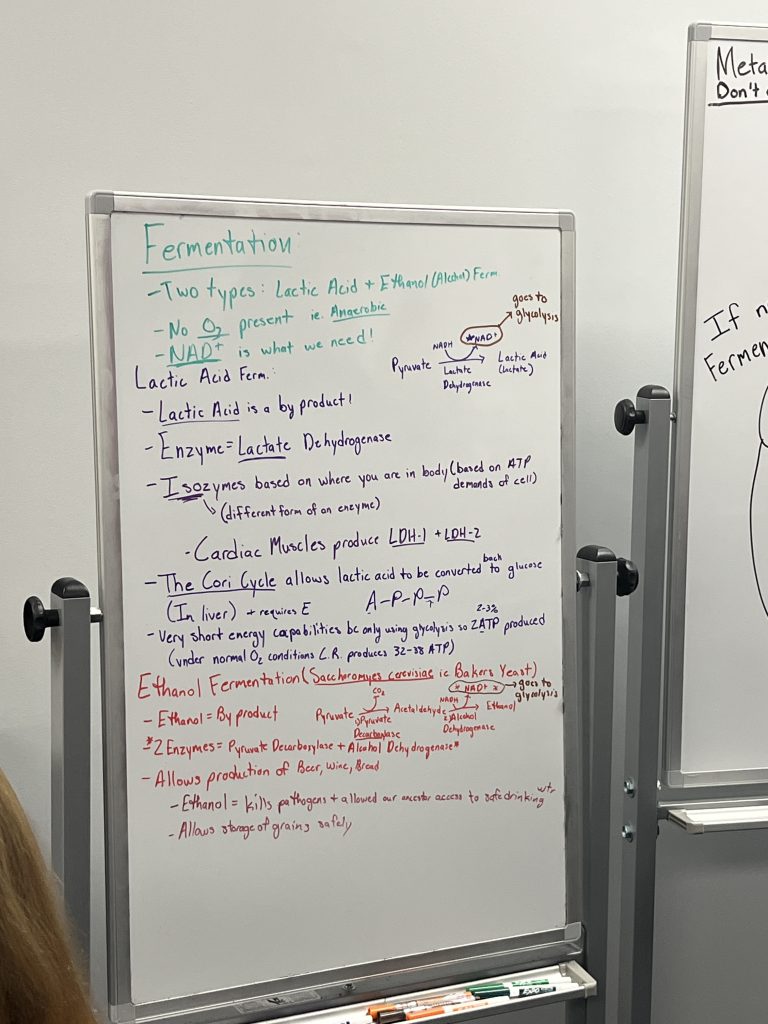 Fermentation
- Two types: Lactic Acid + Ethanol (Alcohol) Ferm.
- No O₂ present ie. Anaerobic
- NAD⁺ is what we need!
goes to
glycolysis
*NAD⁺
NADH
Pyruvate → Lactic Acid
(Lactate)
Lactate
Dehydrogenase
Lactic Acid Ferm.:
- Lactic Acid is a by product!
- Enzyme = Lactate Dehydrogenase
- Isozymes based on where you are in body (based on ATP
demands of cell)
↳ (different form of an enzyme)
- Cardiac Muscles produce LDH-1 + LDH-2
- The Cori Cycle allows lactic acid to be converted back to glucose
(In liver) + requires E
A-P-P-P
- Very short energy capabilities bc only using glycolysis so 2ATP produced
2-3%
(under normal O₂ conditions C.R. produces 32-38 ATP)
Ethanol Fermentation (Saccharomyes cerevisiae ie Bakers Yeast)
* NAD⁺ * → goes to
glycolysis
- Ethanol = By product
CO₂
NADH
Pyruvate → Acetaldehyde → Ethanol
1) Pyruvate
Decarboxylase
2) Alcohol
Dehydrogenase
*-2 Enzymes = Pyruvate Decarboxylase + Alcohol Dehydrogenase*
- Allows production of Beer, Wine, Bread
- Ethanol = kills pathogens + allowed our ancestor access to safe drinking wtr
- Allows storage of grains safely
Meta
Don't
If n
Fermen